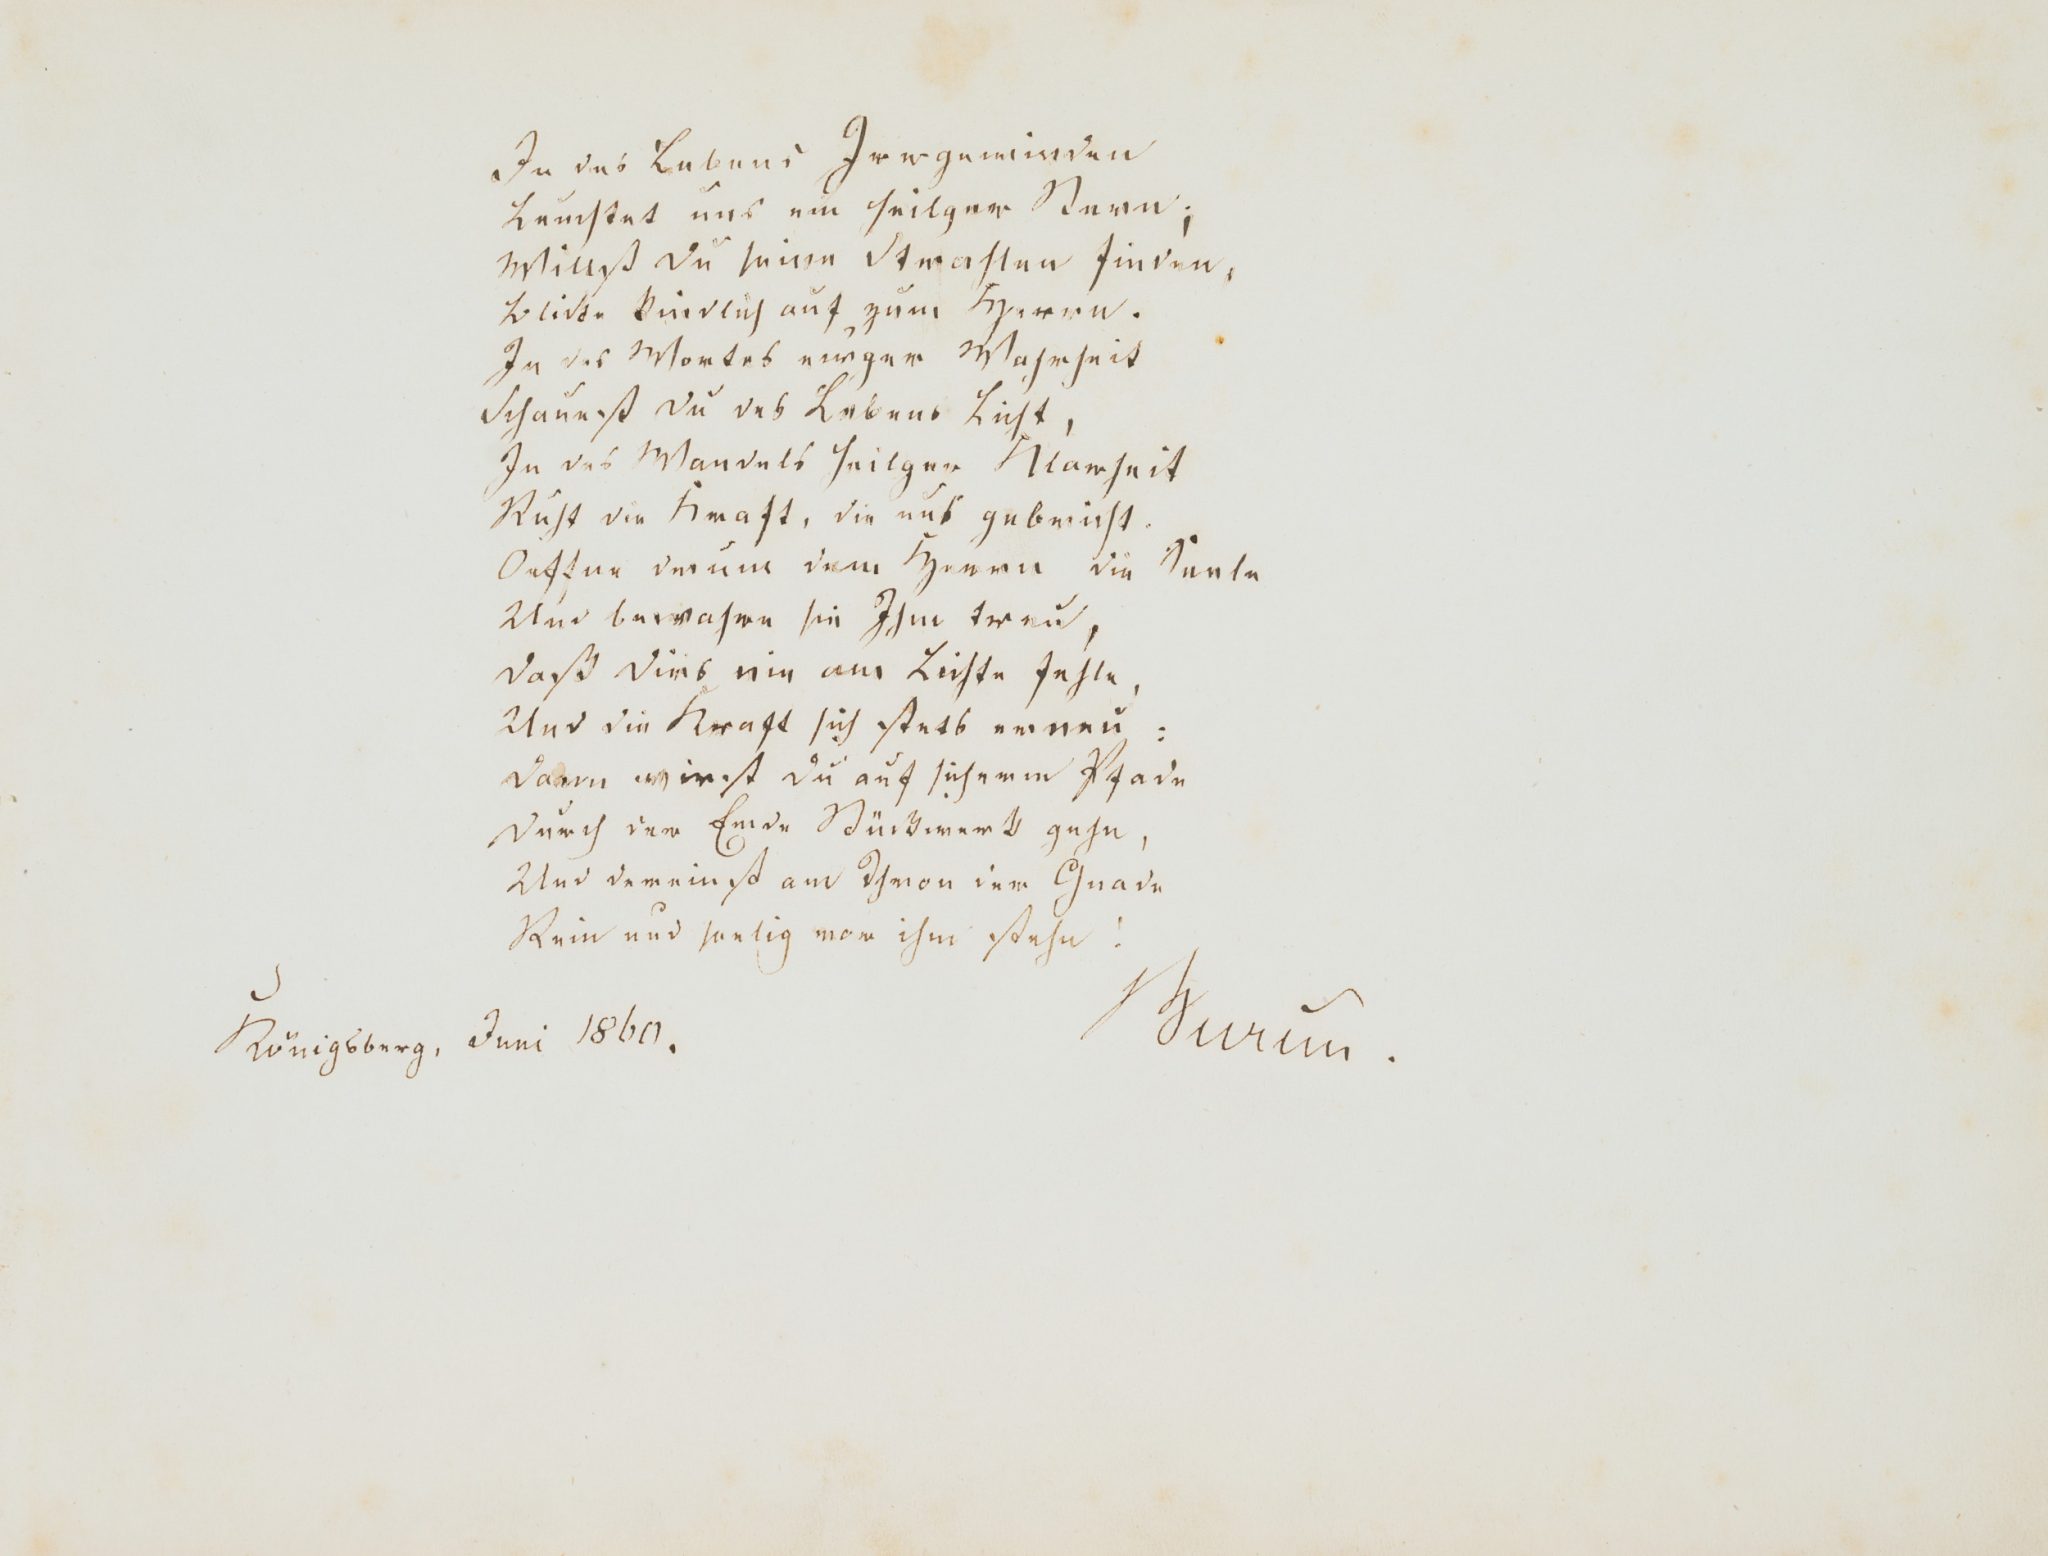 In des Lebens Irrgewinden
Leuchtet uns ein heilger Stern;
Willst Du seine Strahlen finden,
Blicke kindlich auf zum Herrn.
In des Wortes ewger Wahrheit
Schauest Du des Lebens Licht,
In des Wandels heilger Klarheit
Ruht die Kraft, die uns gebricht.
Oeffne drum dem Herrn die Seele
Und bewahre sie Ihm treu,
Daß Dirs nie am Lichte fehle,
Und die Kraft sich stets erneu:
Dann wirst Du auf sicherm Pfade
Durch der Erde Stückwerk gehn,
Und dereinst am Thron der Gnade
Rein und seelig vor ihm stehn!
Königsberg, Juni 1860.